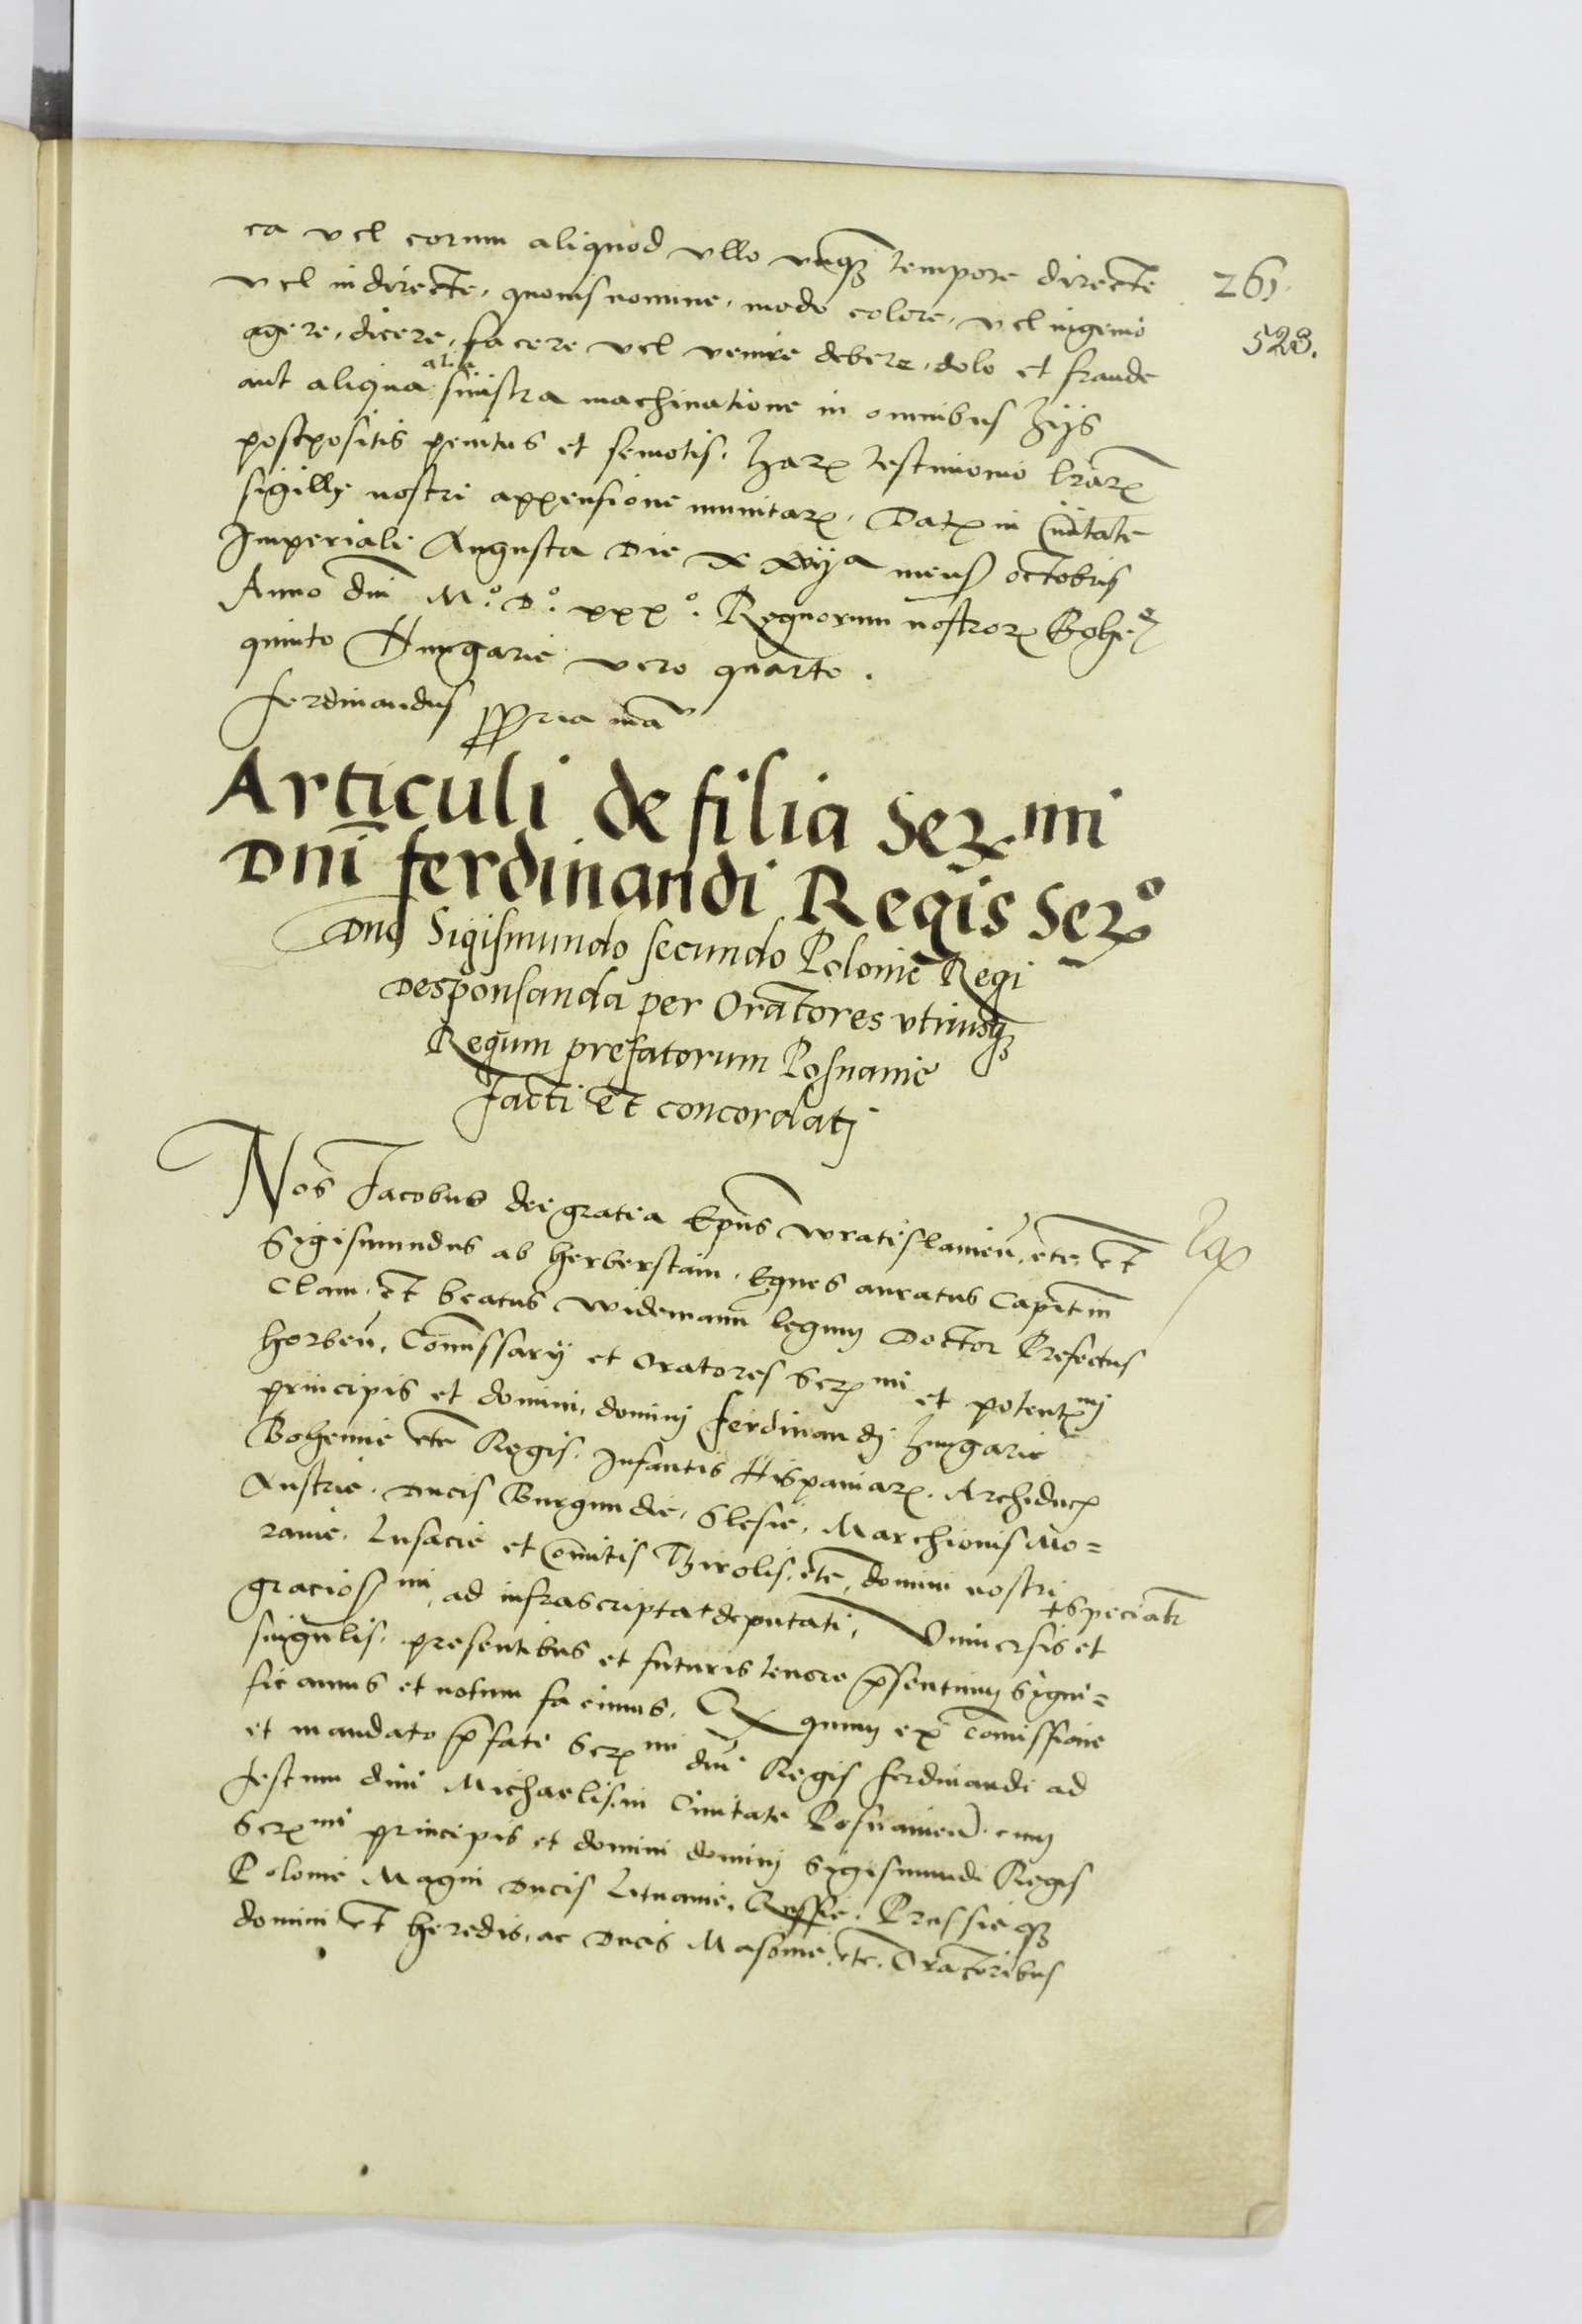 ea vel eorum aliquod vllo vnqȝ tempore directe
261.
vel indirecte, quouis nomine, modo colore, vel ingenio
528.
agere, dicere, facere vel venire debere, dolo et fraude
aut aliqua alia sinistra machinatione in omnibus hijs
postpositis penitus et semotis. Harꝝ testimonio lrarꝝ
sigilly nostri appensione munitarꝝ. Datꝝ in Ciuitate
Imperiali Augusta Die xxvijᵃ mensꝭ octobris
Anno dni Mº. Dº. xxxº. Regnorum nostrorꝝ Bohe
quinto Hungarie vero quarto.
Ferdinandus ppria mau
Articuli de filia Serᵐⁱ
Dni ferdinandi Regis Serº
Dno Sigismundo secundo Polonie Regi
Desponsanda per Oratores vtriusqȝ
Regum prefatorum Posnanie
facti et concordatj
Nos Jacobus dei gratia Epus Wratislauien. etc. et
Sigismundus ab Herberstain. Eques auratus Capitm
Clam. et beatus Widemann legum Doctor Prefectus
Horben. Comissarij et Oratores Serᵐⁱ et potentᵐⁱ
principis et domini, dominj Ferdinandj Hungarie
Bohemie etc Regis. Infantis Hispaniarꝝ. Archiducꝭ
Austrie. Ducis Burgundie, Slesie, Marchionis Mo=
rauie. Lusacie et Comitis Thirolis. etc. domini nostri
graciosᵐⁱ, ad infrascripta + deputati, + speciatr Vniuersis et
singulis. presentibus et futuris tenore psentium signi=
ficamus et notum facimus. Qd quum ex comissione
et mandato pfati Serᵐⁱ dni Regis Ferdinandi ad
festum diui Michaelis in Ciuitate Posnanien. cum
Serᵐⁱ principis et domini dominj Sigismundi Regis
Polonie Magni Ducis Lituanie. Russie. Prussie qȝ
domini et heredis, ac Ducis Masouie. etc. Oratoribus